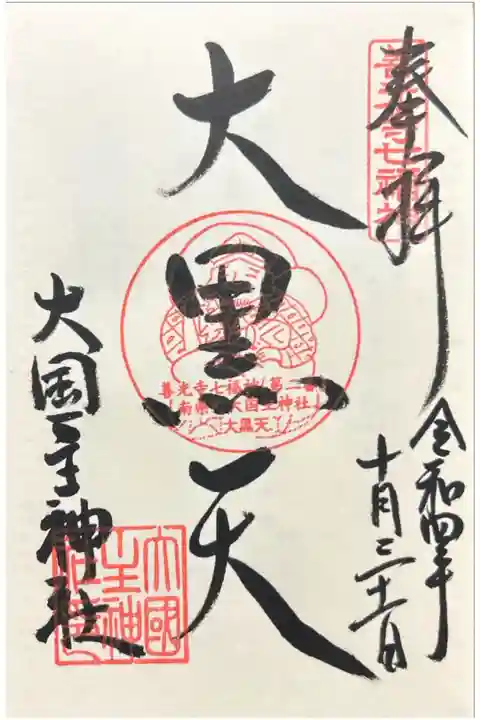 奉拝
善光寺七福神
令和四年
十月三十一日
大黒天
善光寺七福神 第二番
南県町 大国主神社
大黒天
大国主神社
大國
主神